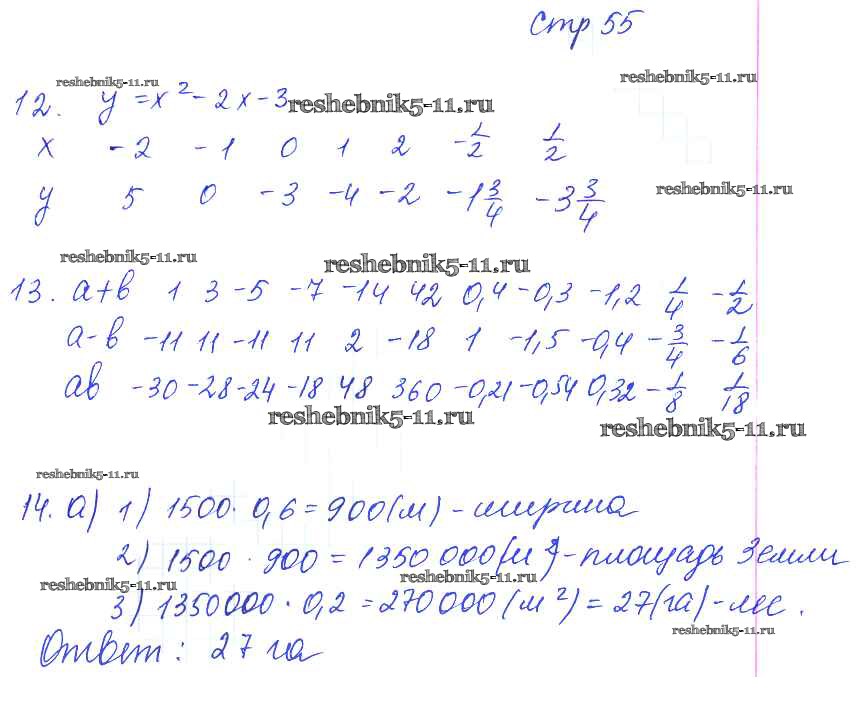 стр 55
reshebnik5-11.ru
reshebnik5-11.ru
12. y = x² - 2x - 3
reshebnik5-11.ru
x -2 -1 0 1 2 -1/2 1/2
y 5 0 -3 -4 -2 -1 3/4 -3 3/4
reshebnik5-11.ru
reshebnik5-11.ru
reshebnik5-11.ru
13. a+b 1 3 -5 -7 -14 42 0,4 -0,3 -1,2 1/4 -1/2
a-b -11 11 -11 11 2 -18 1 -1,5 -0,4 -3/4 -1/6
ab -30 -28 -24 -18 48 360 -0,21 -0,54 0,32 -1/8 1/18
reshebnik5-11.ru
reshebnik5-11.ru
reshebnik5-11.ru
14. а) 1) 1500 · 0,6 = 900 (м) - ширина
2) 1500 · 900 = 1350 000 (м²) - площадь Земли
reshebnik5-11.ru
reshebnik5-11.ru
3) 1350000 · 0,2 = 270000 (м²) = 27 (га) - лес.
reshebnik5-11.ru
Ответ: 27 га